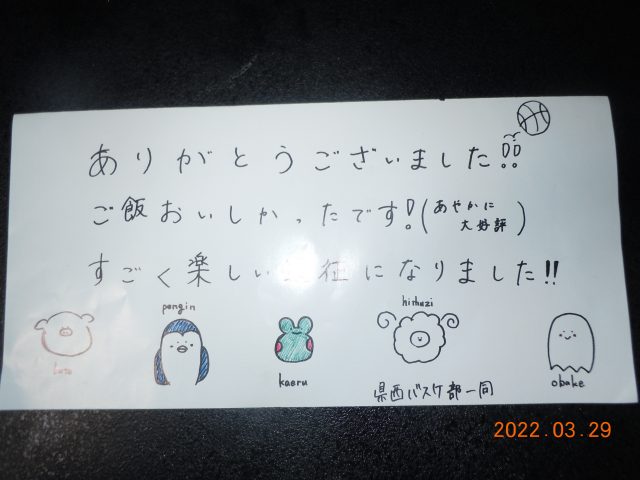 ありがとうございました!!
ご飯おいしかったです!(あやかに大好評)
すごく楽しい 征になりました!!
pengin
hithuzi
buta
kaeru
obake
県西バスケ部一同
2022.03.29